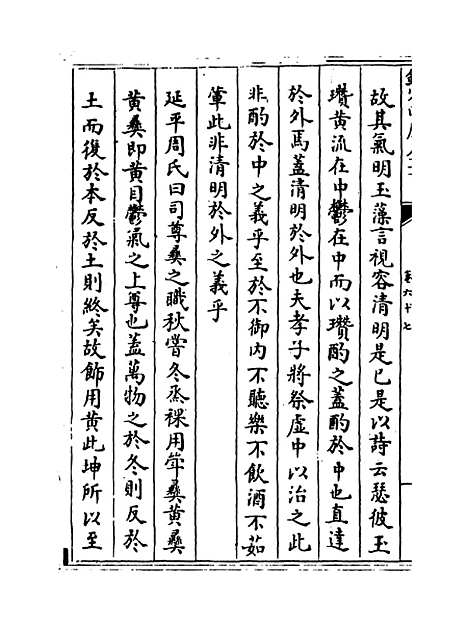 故其氣明玉藻言視容清明是已是以詩云瑟彼玉
瓚黄流在中鬱在中而以瓚酌之蓋酌於中也直達
於外焉蓋清明於外也夫孝子將祭虚中以治之此
非酌於中之義乎至於不御内不聽樂不飲酒不茹
葷此非清明於外之義乎
延平周氏曰司尊彝之職秋嘗冬烝祼用斝彝黄彝
黄彝即黄目鬱氣之上尊也蓋萬物之於冬則反於
土而復於本反於土則終矣故飾用黄此坤所以至